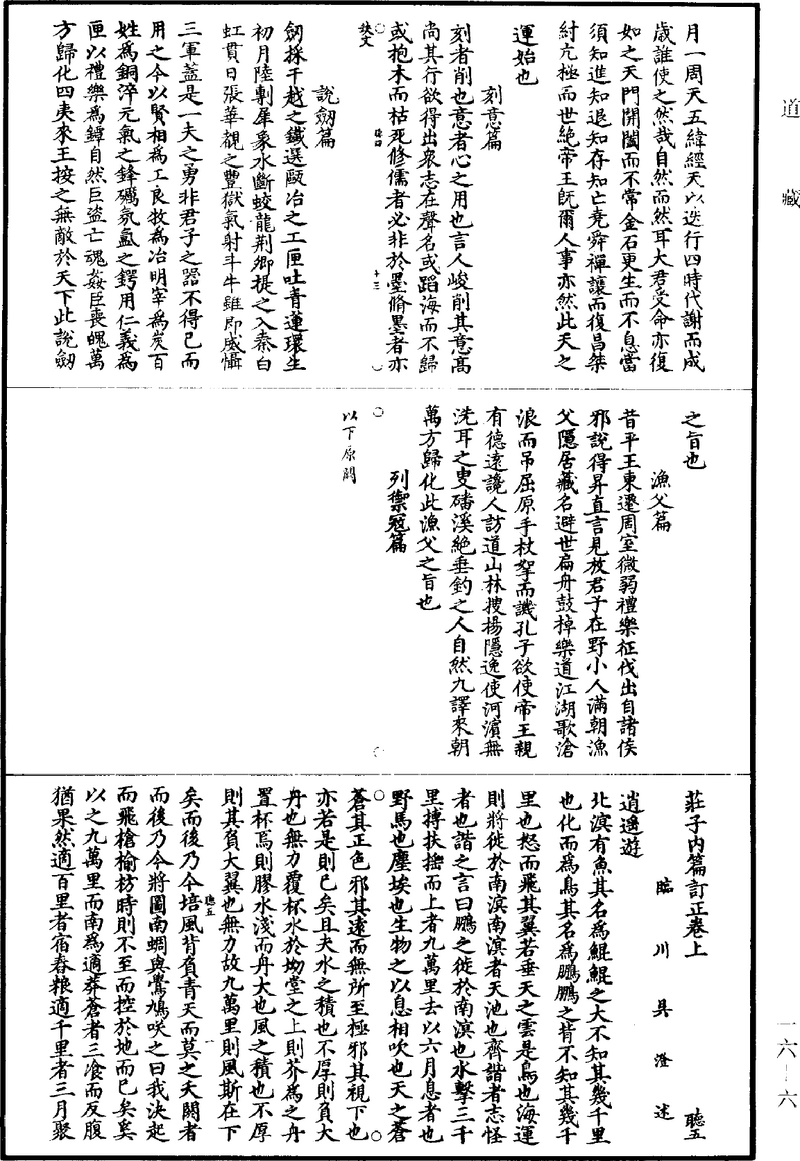 道藏
月一周天五緯經天以迭行四時代謝而成
歲誰使之然哉自然而然耳大君受命亦復
如之天門開闔而不常金石更生而不息當
須知進知退知存知亡堯舜禪讓而復昌桀
紂亢極而世絶帝王既爾人事亦然此天之
運始也
刻意篇
刻者削也意者心之用也言人峻削其意高
尚其行欲得出衆志在聲名或蹈海而不歸
或抱木而枯死修儒者必非於墨脩墨者亦
缺文
說劒篇
劒採干越之鐵選甌冶之工匣吐青蓮環生
初月陸剸犀象水斷蛟龍荆卿提之入秦白
虹貫日張華觀之豐獄氣射斗牛雖即威懾
三軍蓋是一夫之勇非君子之器不得已而
用之今以賢相爲工良牧爲冶明宰爲炭百
姓爲銅淬元氣之鋒礪氛氳之鍔用仁義爲
匣以禮樂爲鐔自然巨盜亡魂姦臣喪魄萬
方歸化四夷來王按之無敵於天下此說劒
之旨也
漁父篇
昔平王東遷周室微弱禮樂征伐出自諸侯
邪說得昇直言見放君子在野小人滿朝漁
父隱居藏名避世扁舟鼓棹樂道江湖歌滄
浪而吊屈原手杖拏而譏孔子欲使帝王親
有德遠讒人訪道山林搜揚隱逸使河濱無
洗耳之叟磻溪絶垂釣之人自然九譯來朝
萬方歸化此漁父之旨也
列禦寇篇
以下原闕
莊子內篇訂正卷上
聽五
臨川吳澄述
逍遥遊
北溟有魚其名爲鯤鯤之大不知其幾千里
也化而爲鳥其名爲鵬鵬之背不知其幾千
里也怒而飛其翼若垂天之雲是鳥也海運
則將徙於南溟南溟者天池也齊諧者志怪
者也諧之言曰鵬之徙於南溟也水擊三千
里搏扶搖而上者九萬里去以六月息者也
野馬也塵埃也生物之以息相吹也天之蒼
蒼其正色邪其遠而無所至極邪其視下也
亦若是則已矣且夫水之積也不厚則負大
舟也無力覆杯水於坳堂之上則芥爲之舟
置杯焉則膠水淺而舟大也風之積也不厚
則其負大翼也無力故九萬里則風斯在下
聽五
一
矣而後乃今培風背負青天而莫之夭閼者
而後乃今將圖南蜩與鷽鳩咲之曰我決起
而飛槍榆枋時則不至而控於地而已矣奚
以之九萬里而南爲適莽蒼者三飡而反腹
猶果然適百里者宿舂粮適千里者三月聚
一六-六